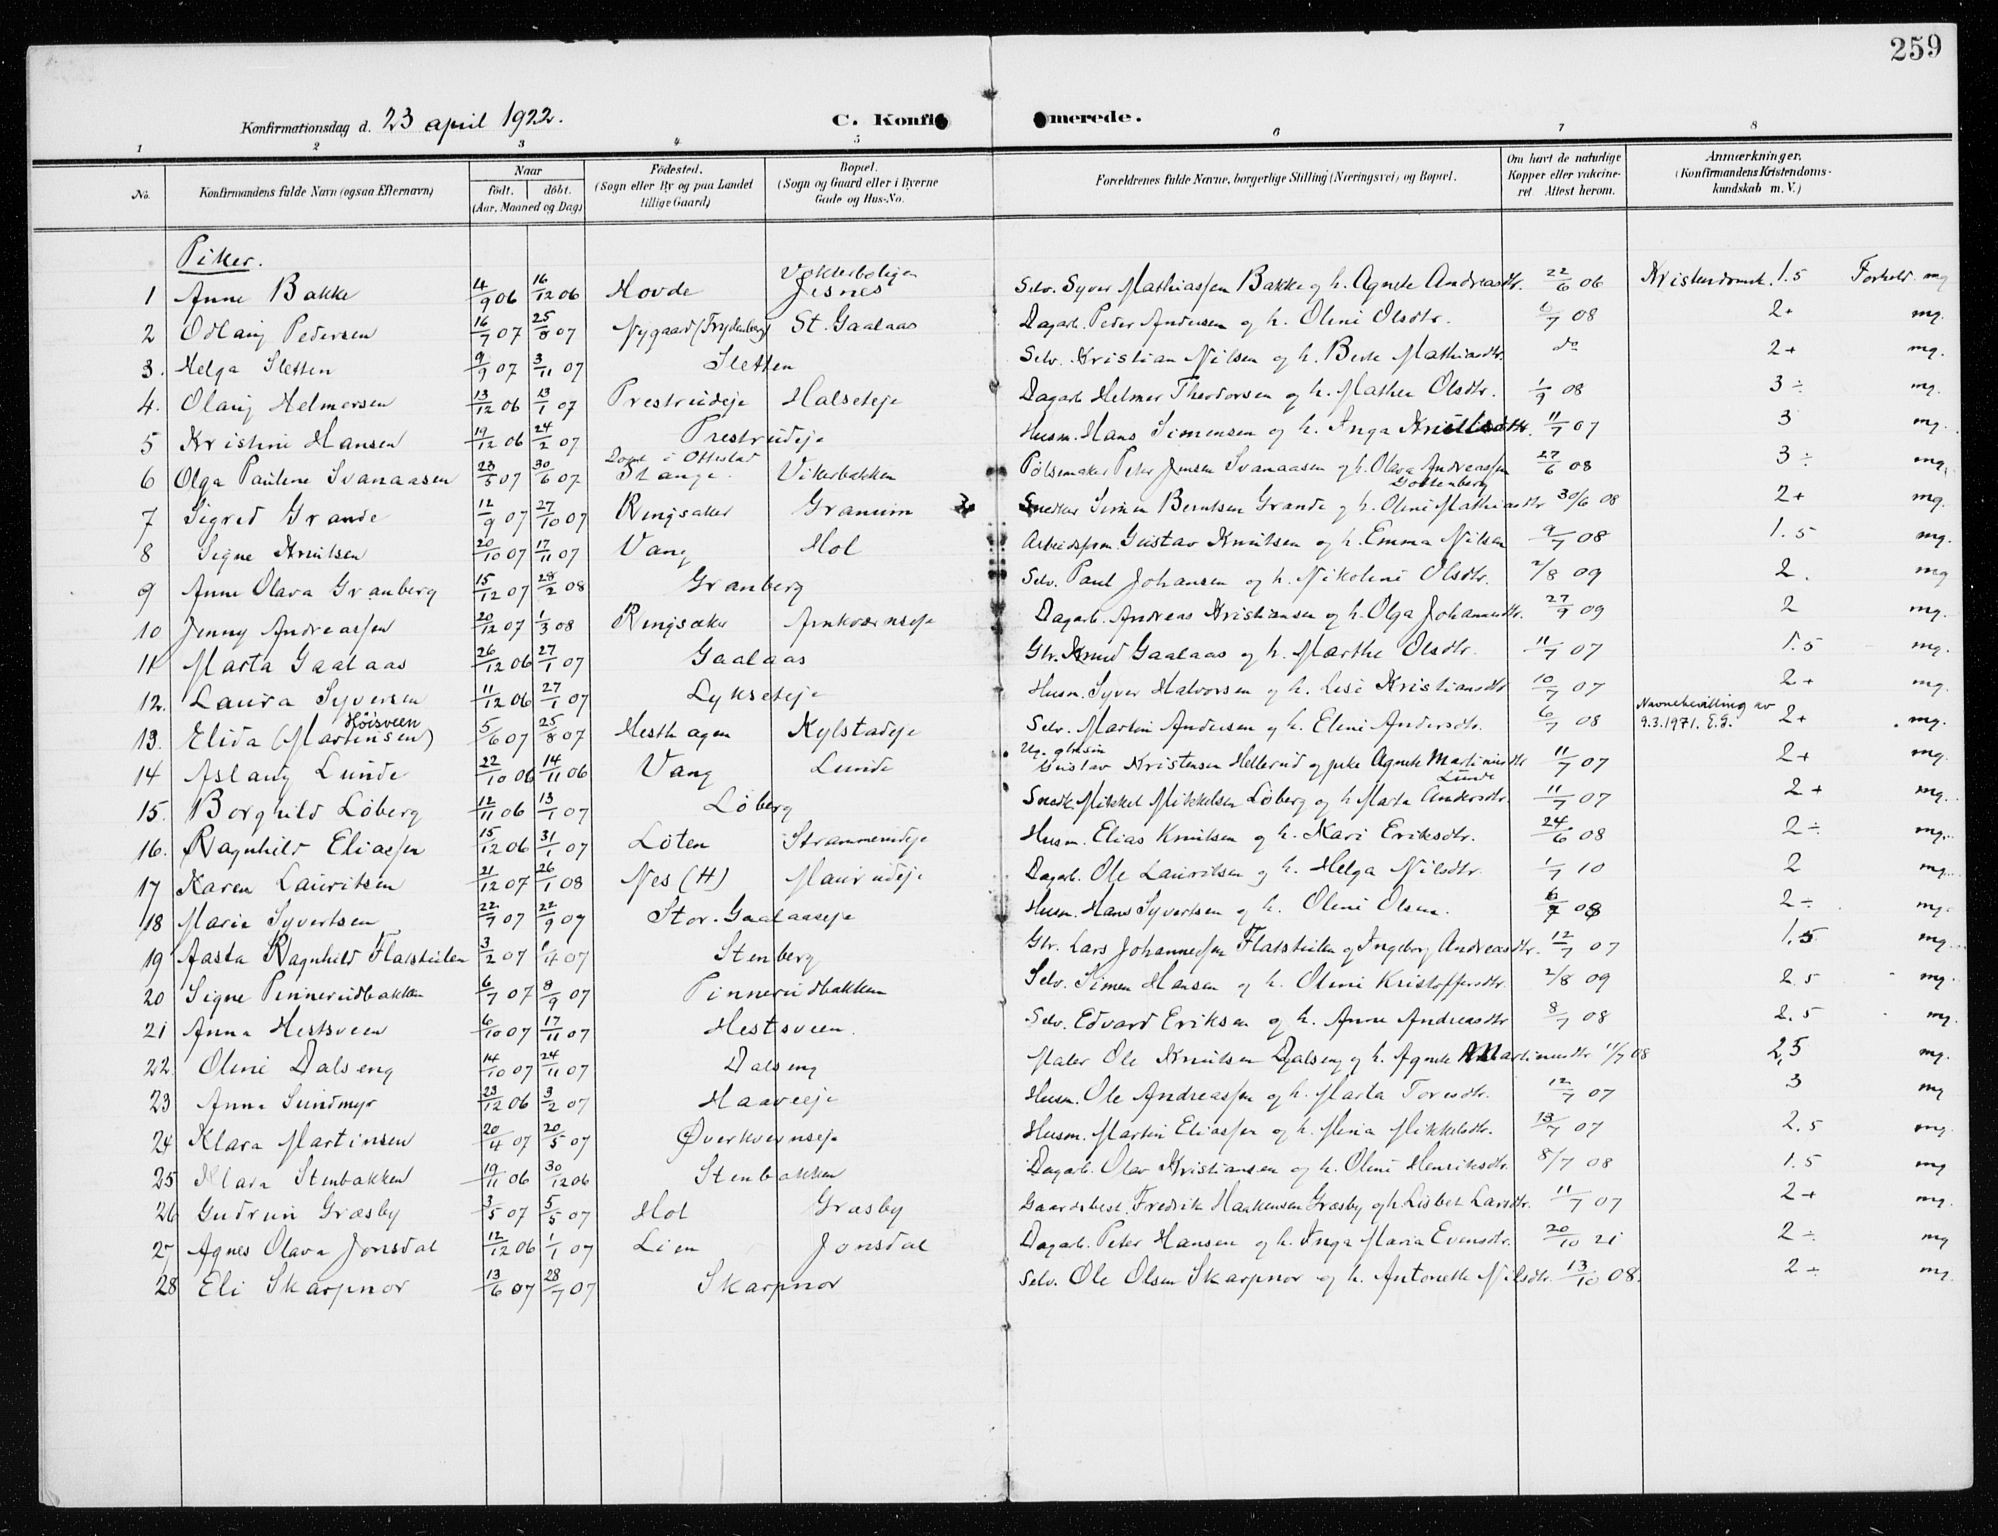 259
Konfirmationsdag d. 23 april 1922. C. Konfirmerede.
1 2 3 4 5 6 7 8
No. Konfirmandens fulde Navn (ogsaa Efternavn) Naar født. døbt. (Aar, Maaned og Dag) Fødested. (Sogn eller By og paa Landet tillige Gaard) Bopæl. (Sogn og Gaard eller i Byerne Gade og Hus-No. Forældrenes fulde Navne, borgerlige Stilling (Næringsvei) og Bopæl. Om havt de naturlige Kopper eller vakcineret. Attest herom. Anmærkninger. (Konfirmandens Kristendomskundskab m. V.)
Piker.
1 Anne Bakke 4/9 06 16/12 06 Hovde Vokterboligen Jesnes Selv. Syver Mathiassen Bakke og h. Agnete Andreasdtr. 22/6 06 Kristendomsk. 1.5 Forhold mg
2 Odlaug Pedersen 16/7 07 25/8 07 Nygaard (Frydenberg) St. Gaalaas Dagarb. Peter Andersen og h. Oline Olsdtr. 6/7 08 2+ mg.
3. Helga Sletten 9/9 07 3/11 07 Sletten Selv. Kristian Nilsen og h. Berte Mathiasdtr. do 2+ mg.
4. Olaug Helmersen 13/12 06 13/1 07 Prestrudeje Halseteje Dagarb. Helmer Theodorsen og h. Mathea Olsdtr. 1/9 08 3÷ mg.
5 Kristine Hansen 19/12 06 24/2 07 Prestrudeje Husm. Hans Simensen og h. Inga Knutsdtr. 11/7 07 3 mg.
6 Olga Pauline Svanaasen 23/5 07 30/6 07 Døpt i Ottestad Stange. Vikerbakken Pølsemaker Peter Jensen Svanaasen og h. Olava Andreassen Gottenberg 27/6 08 3÷ mg.
7 Sigrid Grande 12/9 07 27/10 07 Ringsaker Granum Snedker Simen Berntsen Grande og h. Oline Mathiasdtr 30/6 08 2+ mg.
8 Signe Knutsen 20/10 07 17/11 07 Vang Hol Arbeidsfom. Gustav Knutsen og h. Emma Nilsen 9/7 08 1.5 mg.
9 Anne Olava Granberg 15/12 07 28/2 08 Granberg Selv. Paul Johansen og h. Nikoline Olsdtr. 2/8 09 2. mg
10 Jenny Andreassen 20/12 07 1/3 08 Ringsaker Arnkværnseje Dagarb. Andreas Kristiansen og h. Olga Johansdtr. 27/9 09 2 mg.
11 Marta Gaalaas 26/12 06 27/1 07 Gaalaas Gbr. Knud Gaalaas og h. Marthe Olsdtr. 11/7 07 1.5 mg.
12. Laura Syversen 11/12 06 27/1 07 Lykseteje Husm. Syver Halvorsen og h. Lise Kristiansdtr 10/7 07 2+ mg.
13. Elida (Martinsen) Høisveen 5/6 07 25/8 07 Hesthagen Kylstadeje Selv. Martin Andersen og h. Eline Andersdtr. 6/7 08 Navnebevilling av 9.3.1971. E.G. 2+ mg.
14 Aslaug Lunde 22/10 06 14/11 06 Vang Lunde Ug. Gustav Kristensen Hellerud og pike Agnete Martinusdtr Lunde 11/7 07 2+ mg.
15. Borghild Løberg 12/11 06 13/1 07 Løberg Snedk. Mikkel Mikkelsen Løberg og h Marta Andersdtr. 11/7 07 2+ mg.
16. Ragnhild Eliassen 15/12 06 31/1 07 Løten Strammerudeje Husm. Elias Knutsen og h. Kari Eriksdtr. 24/6 08 2÷ mg.
17 Karen Lauritsen 21/12 07 26/1 08 Nes (H) Maurudeje Dagarb. Ole Lauritsen og h. Helga Nilsdtr. 1/7 10 2 mg.
18 Marie Syvertsen 22/7 07 22/9 07 Stor. Gaalaaseje Husm. Hans Syvertsen og h. Oline Olsen. 6/7 08 2÷ mg.
19 Aasta Ragnhild Flatskilen 3/2 07 1/4 07 Stenberg Gbr. Lars Johannessen Flatskilen og Ingeborg Andreasdtr. 12/7 07 1.5 mg
20 Signe Pinnerudbakken 6/7 07 8/9 07 Pinnerudbakken Selv. Simen Hansen og h. Oline Kristoffersdtr 2/8 09 2.5 mg.
21 Anna Hestsveen 6/10 07 17/11 07 Hestsveen. Selv. Edvard Eriksen og h. Anne Andreasdtr 8/7 08 2.5 mg.
22. Oline Dalseng 14/10 07 24/11 07 Dalseng Maler Ole Knutsen Dalseng og h. Agnete Martinusdtr 11/7 08 2,5 mg.
23 Anna Sundmyr 23/12 06 3/2 07 Haaveeje Husm. Ole Andreassen og h. Marta Toresdtr. 12/7 07 3 mg
24 Klara Martinsen 20/4 07 20/5 07 Øverkvernseje Husm. Martin Eliassen og h. Mina Mikkelsdtr. 13/7 07 2.5 mg.
25 Klara Stenbakken 19/11 06 30/12 06 Stenbakken Dagarb. Olav Kristiansen og h. Oline Henriksdtr. 8/7 08 1.5 mg
26 Gudrun Græsby 3/5 07 5/5 07 Hol Græsby Gaardsbest. Fredrik Haakensen Græsby og h Lisbet Larsdtr. 11/7 07 2+ mg.
27 Agnes Olava Jonsdal 12/12 06 1/1 07 Lien Jonsdal Dagarb. Peter Hansen og h. Inga Maria Evensdtr. 20/10 21 2÷ mg
28 Eli Skarpnor 13/6 07 28/7 07 Skarpnor Selv. Ole Olsen Skarpnor og h. Antonette Nilsdtr. 13/10 08. 2÷ mg.